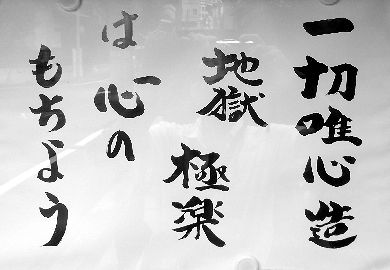 一切唯心造
地獄
極楽
は心の
もちよう